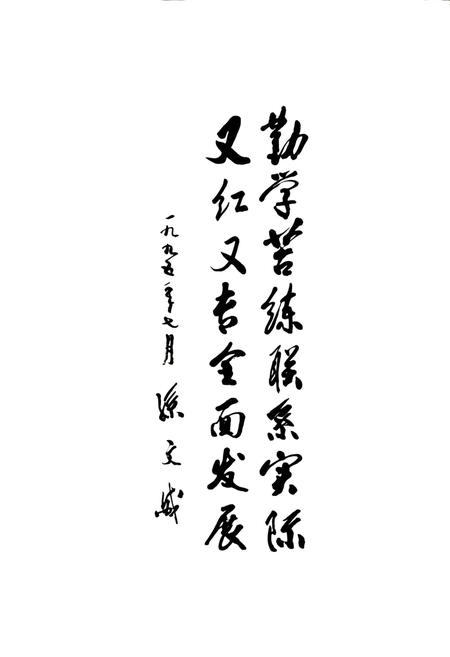 勤学苦练联系实际
又红又专全面发展
一九九五年七月 孫文盛